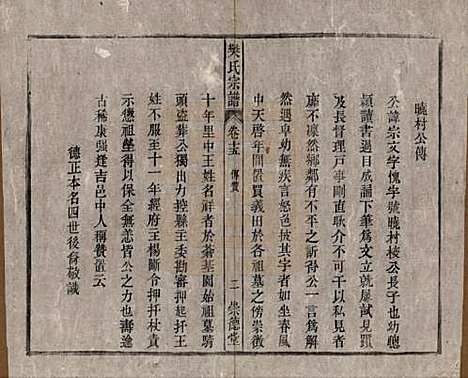 曉村公傳
公諱宗文字愧字號曉村梭公長子也幼聰
穎讀書過日成誦下筆為文立就屢試見䠂
及長督理戸事剛直耿介不可干以私見者
靡不凛然鄉鄰有不平之訴得公一言為解
然遇卑幼無疾言怒色披其宇者如坐春風
中天啓年間置義田於各祖墓之傍崇徵
樊氏宗譜
卷十五
傳贊
二
崇德堂
十年里中王姓名祥者於綦基園始祖墓騎
頭盜葬公獨出力控縣王委勘審押起扦王
姓不服至十一年經府王楊斷令押扦杖責
示懲祖塋得以無恙皆公之力也壽逾
古稀康強逢吉邑中人稱費置云
德正本名四世後裔敬識